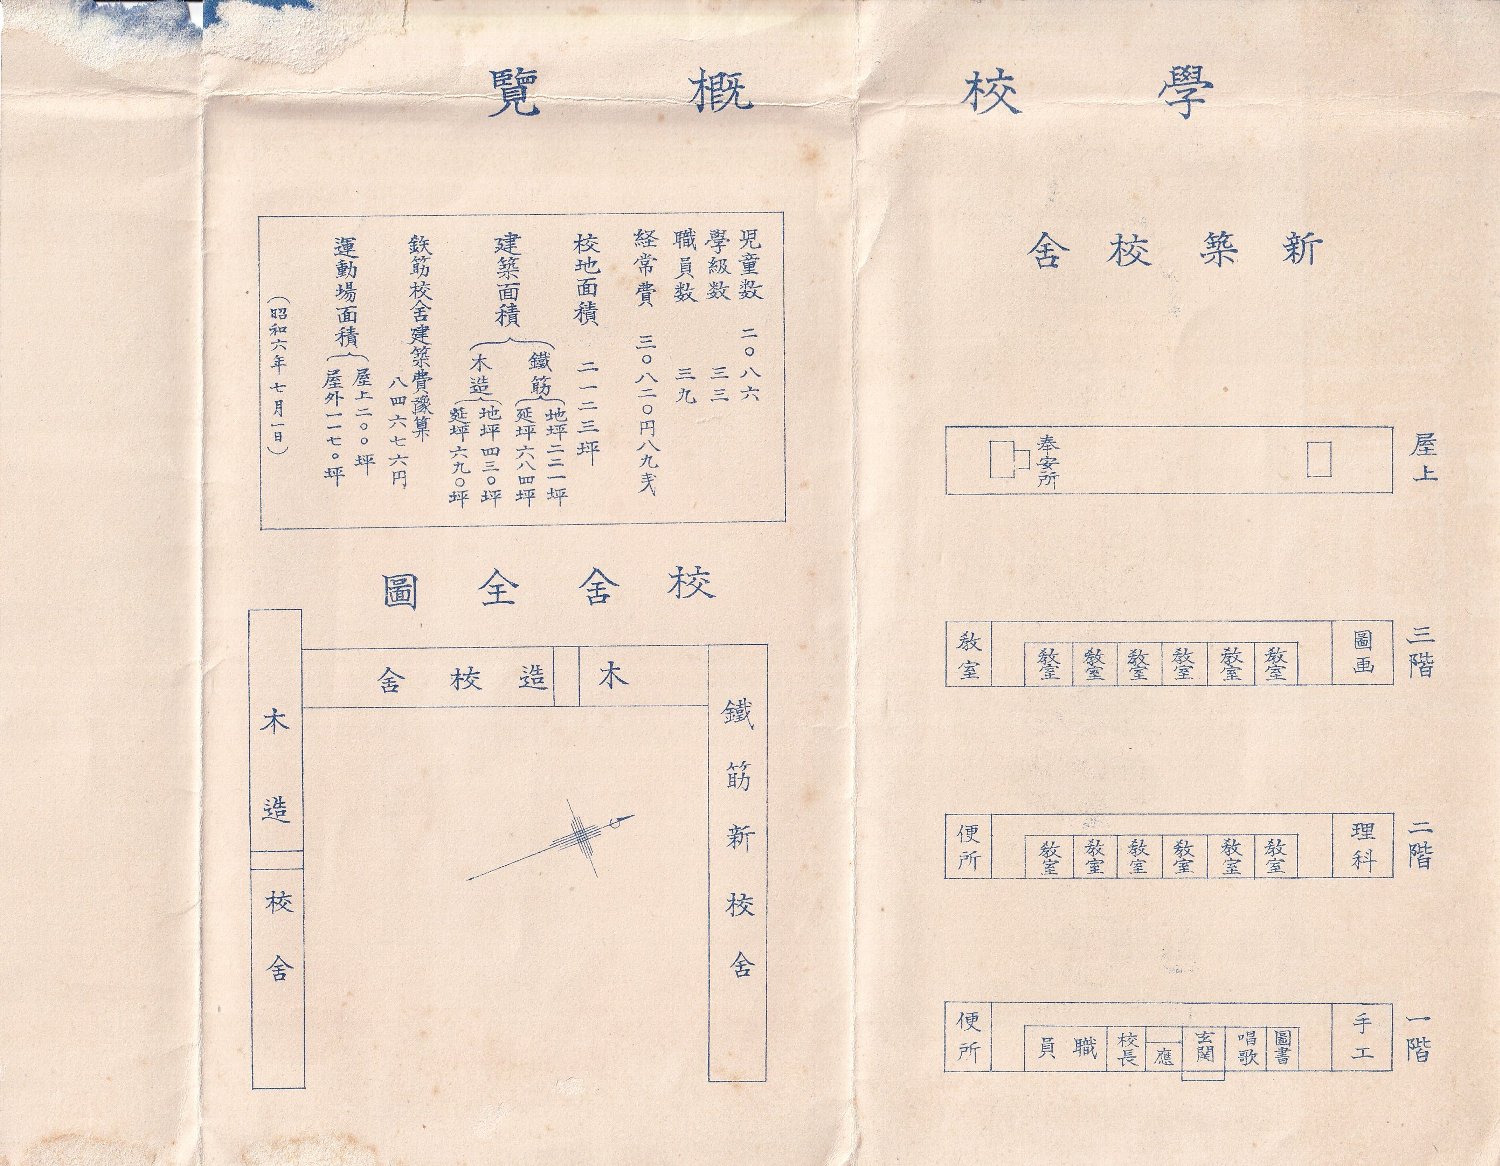 學校概覽
新築校舍
屋上
奉安所
三階
圖画
教室
教室
教室
教室
教室
教室
教室
二階
理科
教室
教室
教室
教室
教室
教室
便所
一階
手工
圖書
唱歌
玄関
應
校長
職員
便所
児童数 二〇八六
學級数 三三
職員数 三九
経常費 三〇八二〇円八九
校地面積 二一二三坪
建築面積
鐵筋
地坪二二一坪
延坪六八四坪
木造
地坪四三〇坪
延坪六九〇坪
鉄筋校舍建築費豫算
八四六七六円
運動場面積
屋上二〇〇坪
屋外一一七〇坪
(昭和六年七月一日)
校舍全圖
鐵筋新校舍
木造校舍
木造校舍